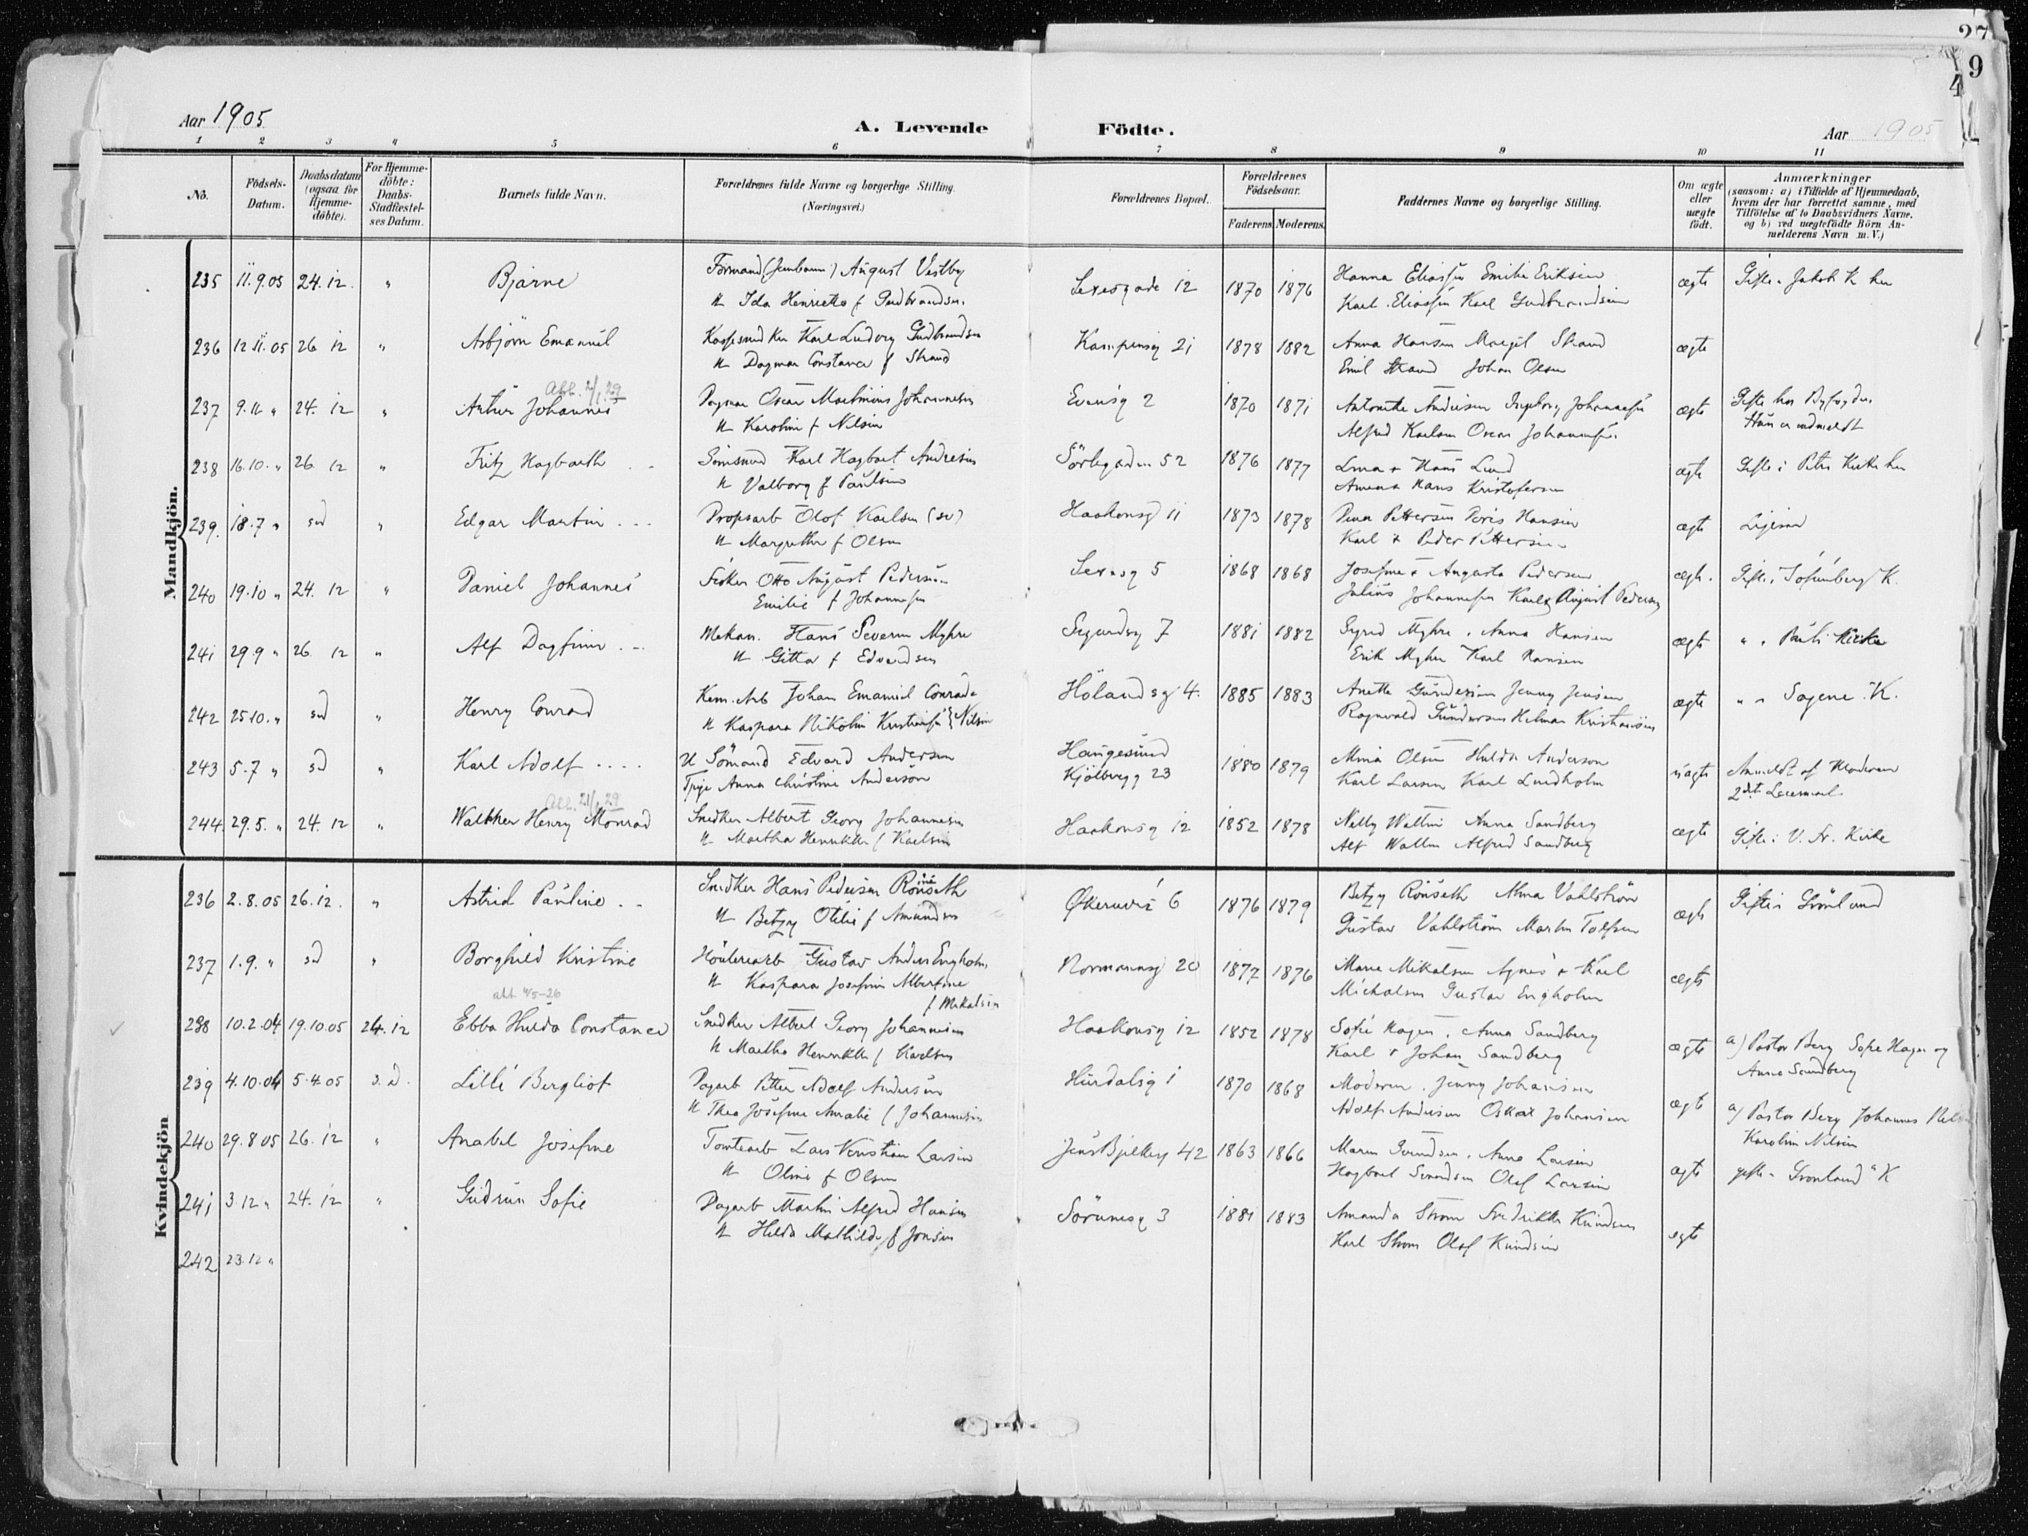 Aar 1905
A. Levende Födte.
Aar 1905
9
4
1 2 3 4 5 6 7 8 9 10 11
No.
Födsels-Datum.
Daabsdatum (ogsaa for Hjemme-döbte).
For Hjemme-döbte: Daabs-Stadfæstel-ses Datum.
Barnets fulde Navn.
Forældrenes fulde Navne og borgerlige Stilling. (Næringsvei.)
Forældrenes Bopæl.
Forældrenes Födselsaar.
Faderens Moderens.
Faddernes Navne og borgerlige Stilling.
Om ægte eller uægte födt.
Anmærkninger
(saasom: a) i Tilfælde af Hjemmedaab, hvem der har forrettet samme, med Tilföielse af to Daabsvidners Navne. og b) ved uægtefödte Börn An-melderens Navn m. V.)
Mandkjön.
235 11.9.05 24.12. " Bjarne August Vestby 12 1870 1876 Hanna Eliassen Emilie Eriksen ægte
Ida Henriette f Gudbrandsen Karl Eliassen Karl Gudbrandsen
236 12.11.05 26 12 " Asbjörn Emanuel Karl Ludvig Gudbrandsen Kampensg 21 1878 1882 Anna Hansen Margit Strand ægte
Dagmar Constance f Strand Emil Strand Johan Olsen
237 9.11 " 24. 12 " Artur Johannes Oscar Martinius Johannesen 2 1870 1871 Antonette Andersen Ingeborg Johannessen ægte
Karoline f Nilsen Alfred Karlsen Oscar Johannessen
238 16.10. " 26 12 " Fritz Hagbarth Karl Hagbart Andresen Sörligaden 52 1876 1877 Hans Lund ægte Gifte i Petri Kirke her
Valborg f Paulsen Hans Kristofersen
239. 18.7 " sd " Edgar Martin Olof Karlsen (sv) Haakonsg 11 1873 1878 Pettersen Hansen ægte
Margrethe f Olsen Karl & Peder Pettersen
240 19.10 " 24. 12 " Daniel Johannes Otto August Pedersen 5 1868 1868 Josefine & Augusta Pedersen ægte. Gifte i Sofienberg K.
Emilie f Johannessen Julius Johannessen Karl & August Pedersen
241 29.9 " 26. 12 " Alf Dagfinn Mekan. Hans Severin Myhre Sigurdsg 7 1881 1882 Sigrid Myhre. Anna Hansen ægte " " Pauls Kirke
Gitta f Edvardsen Erik Myhre Karl Hansen
242 25.10. " sd " Henry Conrad Johan Emanuel Conrad Hölandsg 4. 1885 1883 Anette Gundersen Jenny Jensen ægte " " Sagene K.
Kaspara Nikoline Kristiansen Nilsen Ragnvald Gundersen Hilmar Kristiansen
243 5.7 " sd " Karl Adolf Sömand Edvard Andersen Haugesund 1880 1879 Mina Olsen Hulda Anderson uægte Anmeldt af Moderen
Anna Christine Anderson Kjölbergg 23 Karl Larsen Karl Lundholm 2det Leiermaal
244. 29.5. " 24. 12 " Walther Henry Monrad Snedker Albert Georg Johannesen Haakonsg 12 1852 1878 Nelly Wallin Anna Sandberg ægte Gifte i V. Fr. Kirke
Martha Henrikke f Karlsen Alf Wallin Alfred Sandberg
Kvindekjön
236 2.8.05 26.12. " Astrid Pauline Snedker Hans Pedersen 6 1876 1879 Betzy Alma Vahlström ægte Gifte i Grönland
Betzy Otilie f Amundsen Gustav Vahlström Martin Tolfsen
237 1.9. " sd " Borghild Kristine Gustav Anders Engholm Normannsg 20 1877 1876 Marie Mikalsen Agnes & Karl ægte
Kaspara Josefine Albertine Michalsen Gustav Engholm
f Mikalsen
238 10.2.04 19.10.05 24.12 Ebba Hulda Constance Snedker Albert Georg Johannesen Haakonsg 12 1852 1878 Sofie Hagen. Anna Sandberg ægte a) Pastor Berg Sofie Hagen og
Martha Henrikke f Karlsen Karl & Johan Sandberg Anna Sandberg
239 4.10.04 5.4.05 s.d. Lilli Bergliot Dagarb Petter Adolf Andersen Hurdalsg 1 1870 1868 Moderen. Jenny Johansen ægte a) Pastor Berg Johannes
Thea Josefine Amalie f Johannesen Adolf Andersen Oskar Johansen Karoline Nilsen
240 29.8.05 26.12 " Anabel Josefine Tomtearb Lars Kristian Larsen Jens Bjelkesg 42 1863 1866 Anna Larsen ægte gifte i Grönland K
Oline f Olsen Hagbart Olaf Larsen
241 3.12 " 24. 12 " Gudrun Sofie Dagarb Martin Alfred Hansen Sörumsg 3 1881 1883 Amanda Strøm Fredrikke Knudsen ægte
Hilda Mathilde f Jonsen Karl Strøm Olaf Knudsen
242 23.12 "